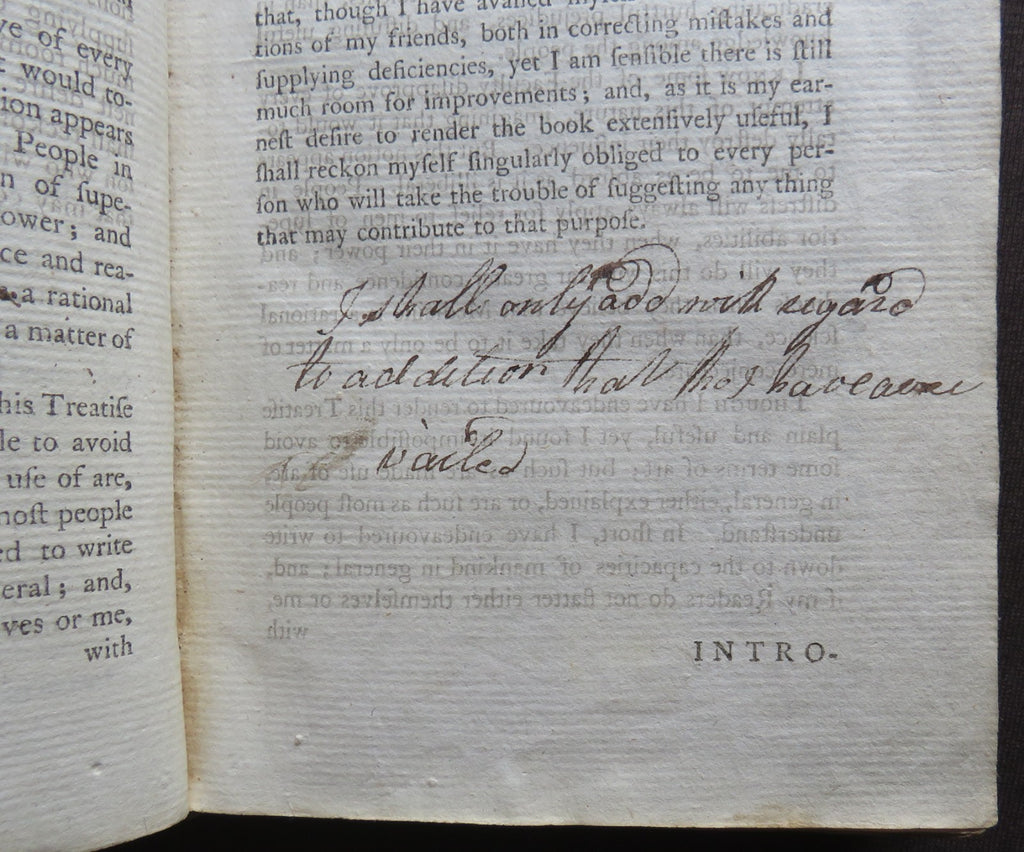 ve of every
would to-
ion appears
People in
n of ſupe-
ower; and
ce and rea-
a rational
a matter of
his Treatiſe
le to avoid
uſe of are,
moſt people
ed to write
eral; and,
ves or me,
with
that, though I have availed
tions of my friends, both in correcting miſtakes and
ſupplying deficiencies, yet I am ſenſible there is ſtill
much room for improvements; and, as it is my ear-
neſt deſire to render the book extenſively uſeful, I
ſhall reckon myſelf ſingularly obliged to every per-
ſon who will take the trouble of ſuggeſting any thing
that may contribute to that purpoſe.
I shall only add with regard
to addition that tho I have
vailed
INTRO-